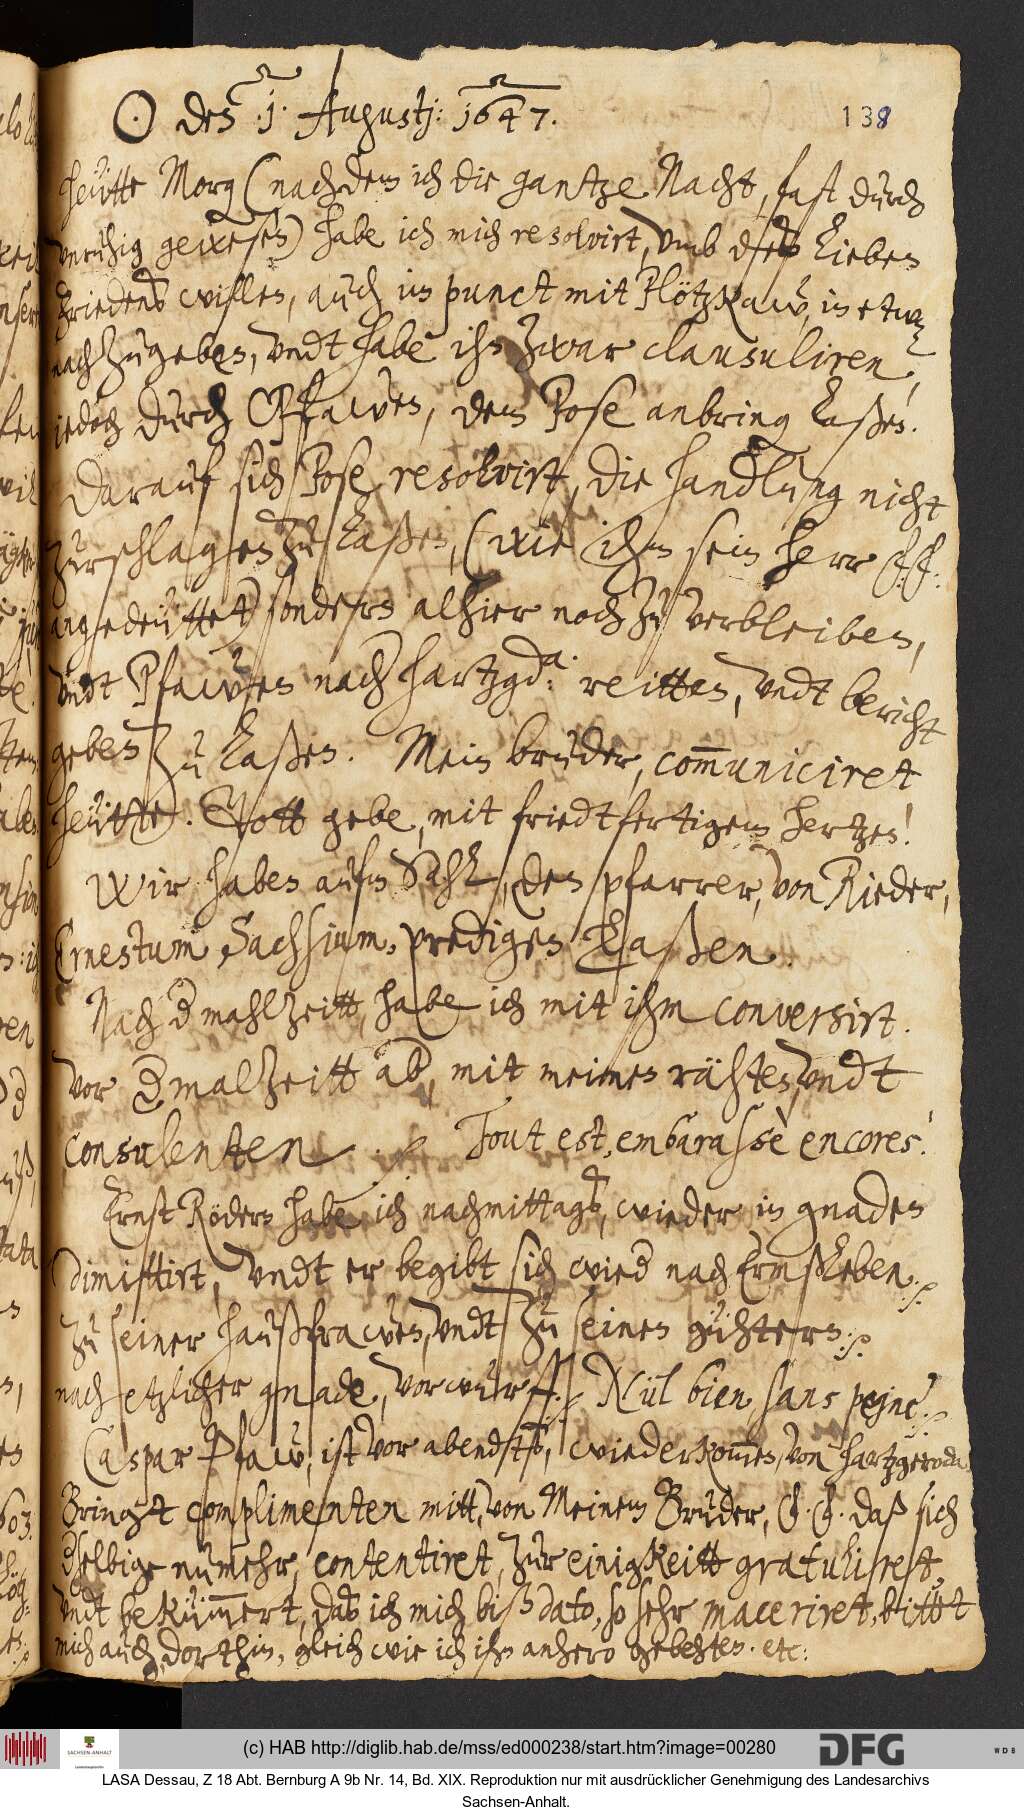 ☉ den 1. Augustj: 1647.
138
Heütte Morg (nachdem ich die gantze Nacht, fast durch
vnruhig gewesen) habe ich mich resolvirt, vmb des lieben
Friedens willen, auch im punct mit Plötzkaw, in etwaß
nachzugeben, vndt habe ihn zwar clausuliren,
jedoch durch Pfawen, dem Pose anbring laßen.
Darauf sich Pose resolvirt, die handlung nicht
zurschlagen zu laßen, (wie ihm sein herr
angedeüttet) sondern alhier noch zu verbleiben,
vndt Pfawen nach Hartzgda: reitten, vndt bericht
geben zu laßen. Mein bruder, com̄uniciret
heütte. Gott gebe, mit friedtfertigem hertzen!
Wir haben aufm Sahl, den pfarrer, von Rieder,
Ernestum Sachsium, predigen laßen.
Nach d mahlzeitt, habe ich mit ihm conversirt.
vor d malzeitt ab, mit meinen rähten, vndt
consulenten ./. Tout est, embarassè encores!
Ernst Rödern habe ich nachmittags, wieder in gnaden
dimittirt, vndt er begibt sich wied nach Ermßleben ./.
zu seiner haußfrawen, vndt zu seinen gühtern ./.
nach etzlicher gnade, vorwurff ./. Nül bien, sans peine ./.
Caspar Pfaw, ist vor abendts, wiederkom̄en, von Hartzgeroda
Bringt complimenten mitt, von Meinem Bruder, daß sich
dselbige numehr, contentiret, zur einigkeitt gratulirett,
vndt beküm̄ert, das ich mich biß dato, so sehr maceriret, bittet
mich auch, dorthin, gleich wie ich ihn anhero gebehten. etc:
(c) HAB http://diglib.hab.de/mss/ed000238/start.htm?image=00280
SACHSEN-ANHALT
DFG
WDB
LASA Dessau, Z 18 Abt. Bernburg A 9b Nr. 14, Bd. XIX. Reproduktion nur mit ausdrücklicher Genehmigung des Landesarchivs
Sachsen-Anhalt.